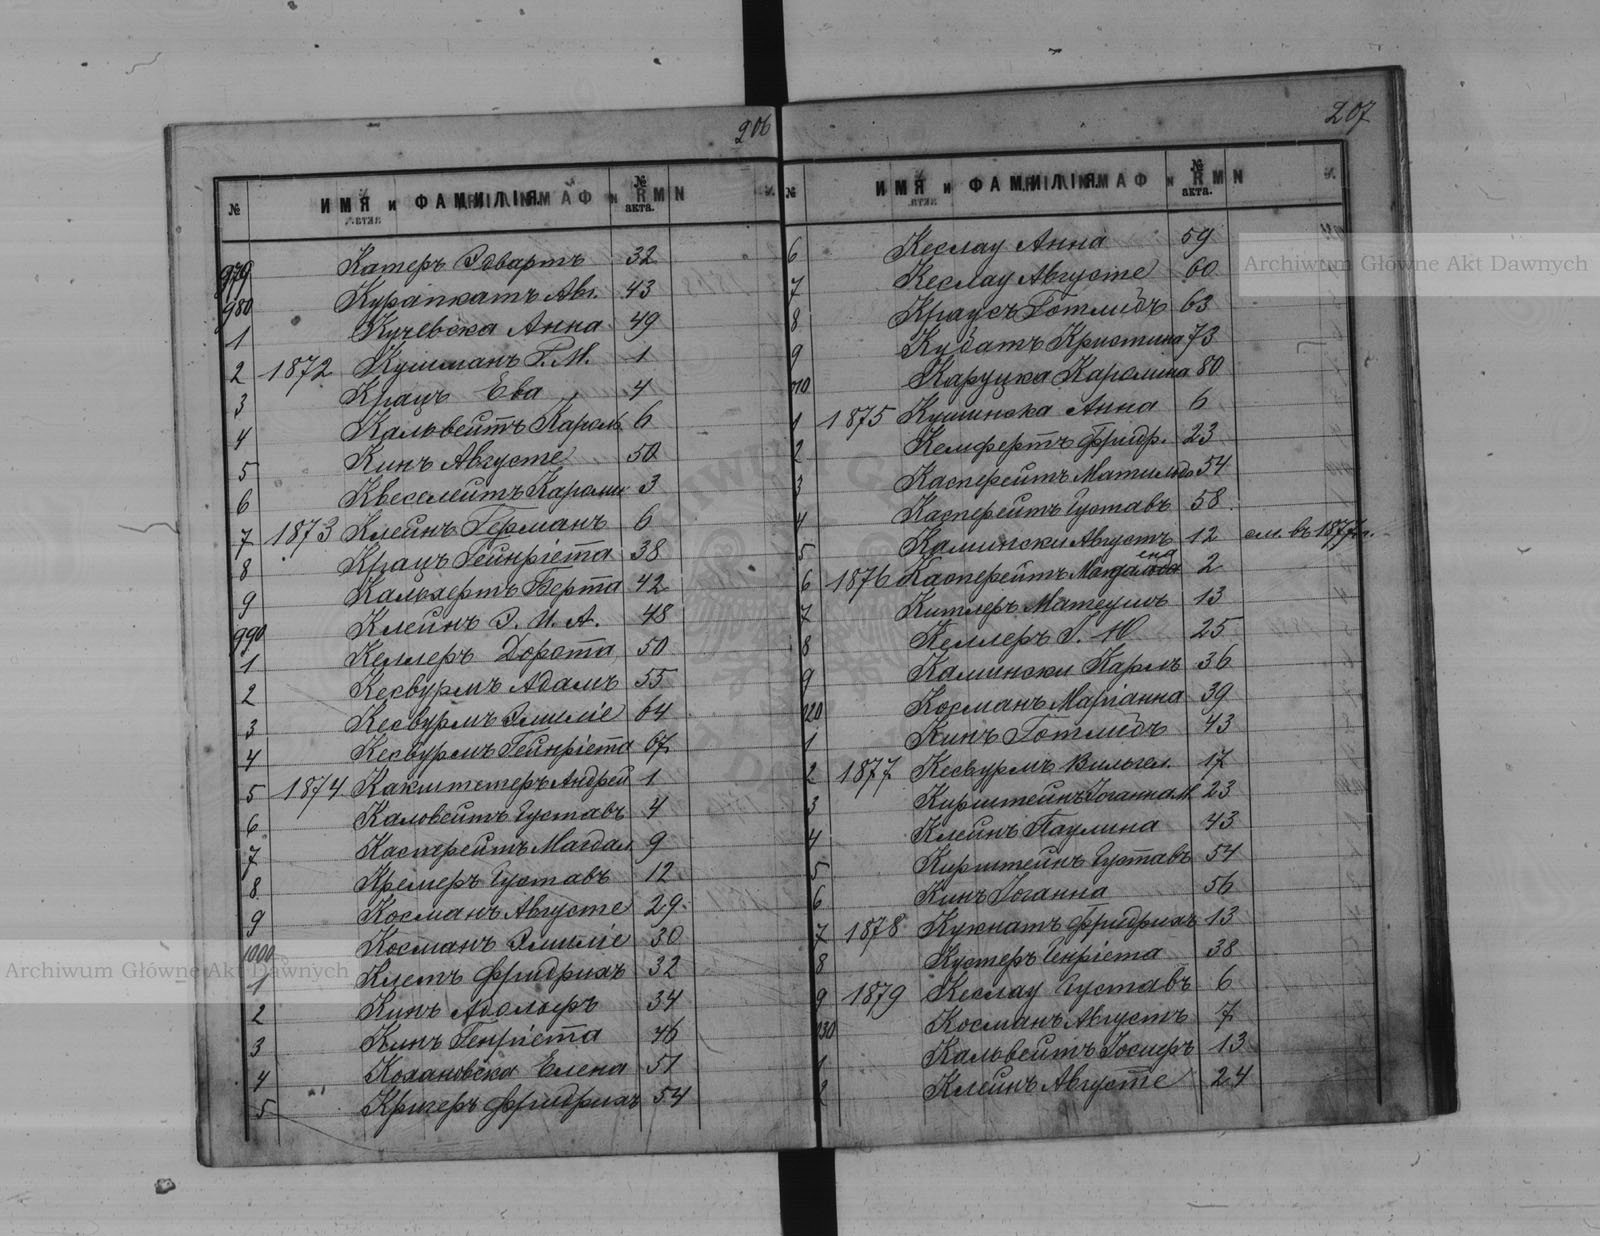 206
№ ИМЯ и ФАМИЛІЯ. № акта.
979 Катеръ Эдвартъ 32
980 Курапкатъ Авг. 43
1 Кучевска Анна 49
2 1872 Кушманъ Г. М. 1
3 Крацъ Ева 4
4 Кальвейтъ Кароль 6
5 Кинъ Августе 50
6 Квеселейтъ Каролин 3
7 1873 Клейнъ Германъ 6
8 Крацъ Гейнріета 38
9 Кальхертъ Берта 42
990 Клейнъ Э. И. А. 48
1 Келлеръ Дорота 50
2 Кесвурмъ Адамъ 55
3 Кесвурмъ Эмиліе 64
4 Кесвурмъ Гейнріета 67
5 1874 Какштетеръ Андрей 1
6 Каловейтъ Густавъ 4
7 Касперейтъ Магдал 9
8 Кремеръ Густавъ 12
9 Косманъ Августе 29.
1000 Косманъ Эмиліе 30
1 Клемъ Фридрихъ 32
2 Кинъ Адольфъ 34
3 Кинъ Генріета 46
4 Кохановска Елена 51
5 Кригеръ Фридрихъ 54
207
№ ИМЯ и ФАМИЛІЯ. № акта.
6 Кеслау Анна 59
7 Кеслау Августе 60
8 Краусъ Готлибъ 63
9 Кубатъ Кристина 73
10 Каруцка Каролина 80
1 1875 Кушинска Анна 6
2 Кемфертъ Фридр. 23
3 Касперейтъ Матильда 54
4 Касперейтъ Густавъ 58
5 Камински Августъ 12 см. въ 1877 г.
6 1876 Касперейтъ Магдалена 2
7 Китлеръ Матеушъ 13
8 Келлеръ Г. Ю 25
9 Камински Карлъ 36
120 Косманъ Маріанна 39
1 Кинъ Готлибъ 43
2 1877 Кесвурмъ Вильгел. 17
3 Кирштейнъ Іоганна М 23
4 Клейнъ Паулина 43
5 Кирштейнъ Густавъ 54
6 Кинъ Іоганна 56
7 1878 Кукнатъ Фридрихъ 13
8 Кустеръ Генріета 38
9 1879 Кеслау Густавъ 6
130 Косманъ Августъ 7
1 Кальвейтъ Іосифъ 13
2 Клейнъ Августе 24
Archiwum Główne Akt Dawnych
Archiwum Główne Akt Dawnych